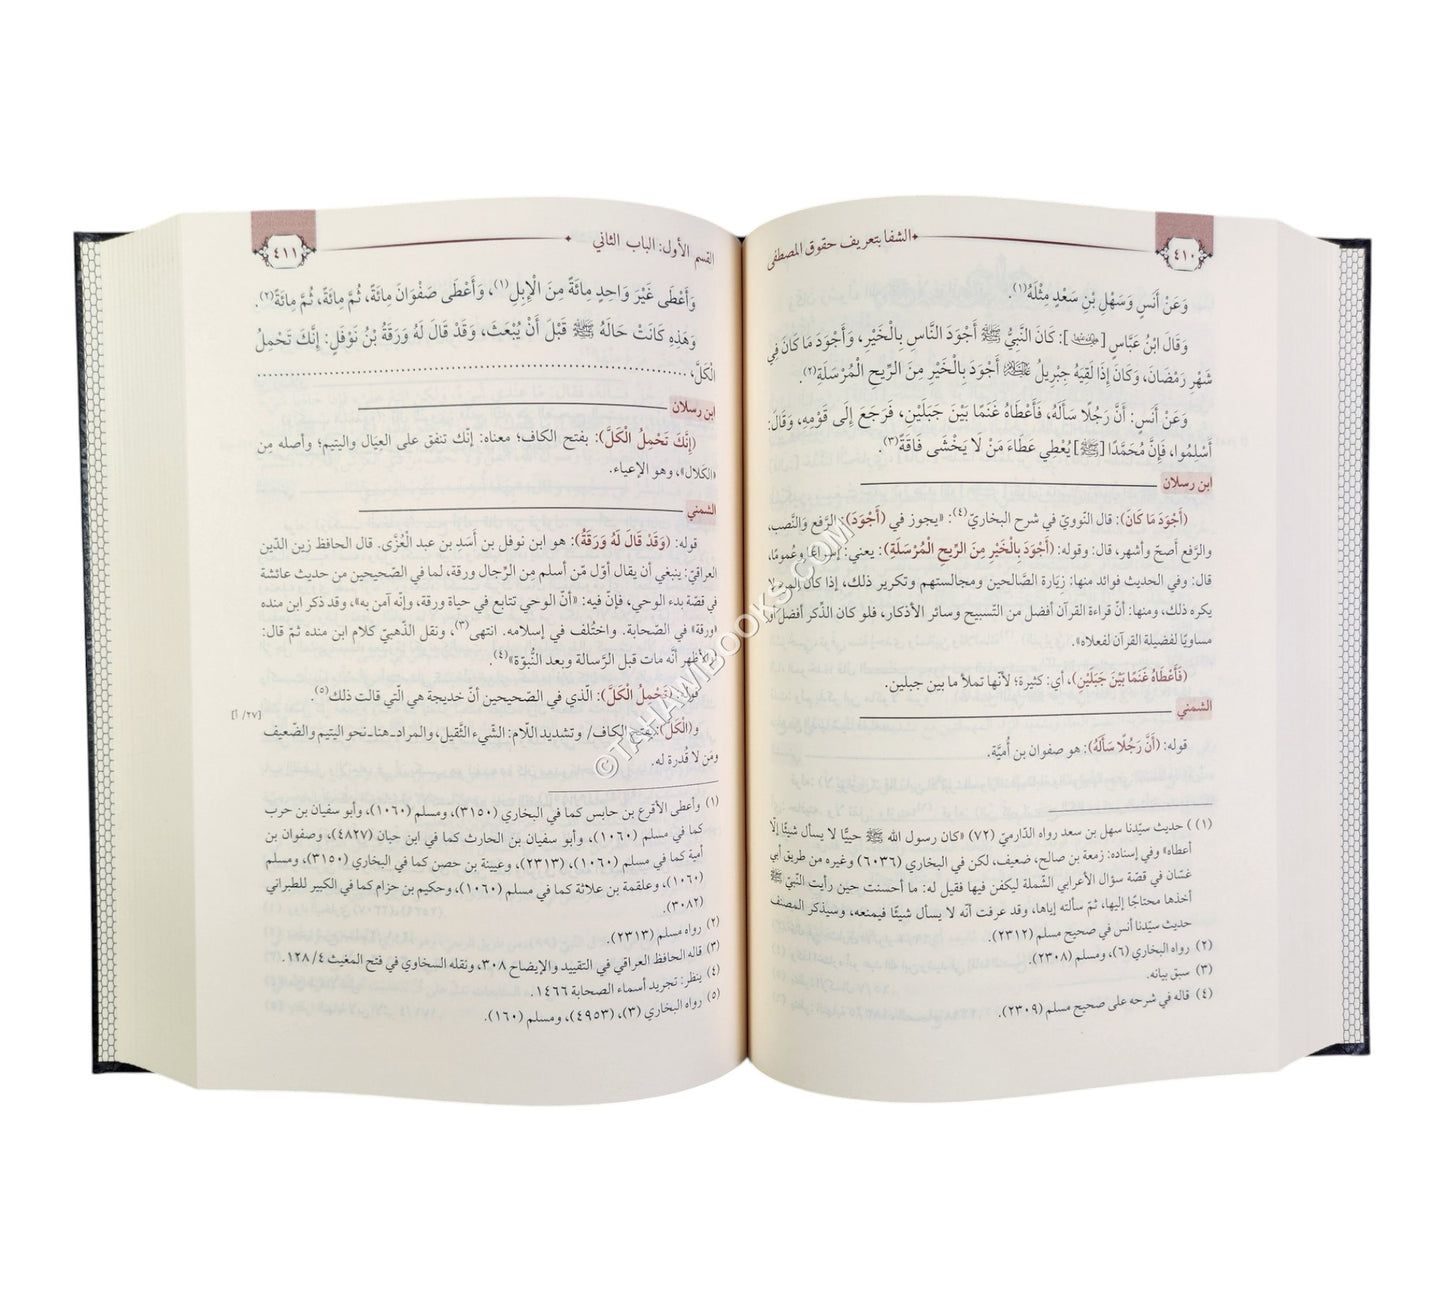 ٤١٠
الشفا بتعريف حقوق المصطفى
وَعَنْ أَنَسٍ وَسَهْلِ بْنِ سَعْدٍ مِثْلَهُ(١).
وَقَالَ ابْنُ عَبَّاسٍ [رضي الله عنهما]: كَانَ النَّبِيُّ ﷺ أَجْوَدَ النَّاسِ بِالْخَيْرِ، وَأَجْوَدَ مَا كَانَ فِي
شَهْرِ رَمَضَانَ، وَكَانَ إِذَا لَقِيَهُ جِبْرِيلُ عليه السلام أَجْوَدَ بِالْخَيْرِ مِنَ الرِّيحِ الْمُرْسَلَةِ(٢).
وَعَنْ أَنَسٍ: أَنَّ رَجُلًا سَأَلَهُ، فَأَعْطَاهُ غَنَمًا بَيْنَ جَبَلَيْنِ، فَرَجَعَ إِلَى قَوْمِهِ، وَقَالَ:
أَسْلِمُوا، فَإِنَّ مُحَمَّدًا [ﷺ] يُعْطِي عَطَاءَ مَنْ لَا يَخْشَى فَاقَةً(٣).
ابن رسلان
(أَجْوَدَ مَا كَانَ): قال النّوويّ في شرح البخاريّ(٤): «يجوز في (أَجْوَدَ): الرَّفع وَالنَّصب،
والرَّفع أصحّ وأشهر، قال: وقوله: (أَجْوَدَ بِالْخَيْرِ مِنَ الرِّيحِ الْمُرْسَلَةِ): يعني: إسراعًا وعُمومًا،
قال: وفي الحديث فوائد منها: زيَارة الصَّالحين ومجالستهم وتكرير ذلك، إذا كان المزور لا
يكره ذلك، ومنها: أنّ قراءة القرآن أفضل من التّسبيح وسائر الأذكار، فلو كان الذّكر أفضل أو
مساويًا لفضيلة القرآن لفعلاه».
(فَأَعْطَاهُ غَنَمًا بَيْنَ جَبَلَيْنِ)، أي: كثيرة؛ لأنّها تملأ ما بين جبلين.
الشمني
قوله: (أَنَّ رَجُلًا سَأَلَهُ): هو صفوان بن أُميَّة.
(١) ) حديث سيّدنا سهل بن سعد رواه الدّارميّ (٧٢) «كان رسول الله ﷺ حييًّا لا يسأل شيئًا إلّا
أعطاه» وفي إسناده: زمعة بن صالح، ضعيف، لكن في البخاري (٦٠٣٦) وغيره من طريق أبي
غسّان في قصّة سؤال الأعرابي الشّملة ليكفن فيها فقيل له: ما أحسنت حين رأيت النّبيّ ﷺ
أخذها محتاجًا إليها، ثمّ سألته إياها، وقد عرفت أنّه لا يسأل شيئًا فيمنعه، وسيذكر المصنف
حديث سيّدنا أنس في صحيح مسلم (٢٣١٢).
(٢) رواه البخاري (٦)، ومسلم (٢٣٠٨).
(٣) سبق بيانه.
(٤) قاله في شرحه على صحيح مسلم (٢٣٠٩).
القسم الأول: الباب الثاني
٤١١
وَأَعْطَى غَيْرَ وَاحِدٍ مِائَةً مِنَ الْإِبِلِ(١)، وَأَعْطَى صَفْوَانَ مِائَةً، ثُمَّ مِائَةً، ثُمَّ مِائَةً(٢).
وَهَذِهِ كَانَتْ حَالَهُ ﷺ قَبْلَ أَنْ يُبْعَثَ، وَقَدْ قَالَ لَهُ وَرَقَةُ بْنُ نَوْفَلٍ: إِنَّكَ تَحْمِلُ
الْكَلَّ، ........................................
ابن رسلان
(إِنَّكَ تَحْمِلُ الْكَلَّ): بفتح الكاف؛ معناه: إنّك تنفق على العِيَال واليتيم؛ وأصله مِن
«الكَلال»، وهو الإعياء.
الشمني
قوله: (وَقَدْ قَالَ لَهُ وَرَقَةُ): هو ابن نوفل بن أَسَدِ بن عبد العُزَّى. قال الحافظ زين الدّين
العراقيّ: ينبغي أن يقال أوّل مّن أسلم مِن الرِّجال ورقة، لما في الصّحيحين من حديث عائشة
في قصّة بدء الوحي، فإنّ فيه: «أنّ الوحي تتابع في حياة ورقة، وإنّه آمن به»، وقد ذكر ابن منده
«ورقة» في الصّحابة. واختُلف في إسلامه. انتهى(٣)، ونقل الذّهبيّ كلام ابن منده ثمّ قال:
«والأظهر أنَّه مات قبل الرّسالة وبعد النُّبوّة»(٤).
قوله: (تَحْمِلُ الْكَلَّ): الّذي في الصّحيحين أنّ خديجة هي الّتي قالت ذلك(٥).
[٢٧/ أ]
و(الْكَلَّ): بفتح الكاف/ وتشديد اللّام: الشّيء الثّقيل، والمراد ـ هنا ـ نحو اليتيم والضّعيف
ومَن لا قُدرة له.
(١) وأعطى الأقرع بن حابس كما في البخاري (٣١٥٠)، ومسلم (١٠٦٠)، وأبو سفيان بن حرب
كما في مسلم (١٠٦٠)، وأبو سفيان بن الحارث كما في ابن حبان (٤٨٢٧)، وصفوان بن
أمية كما في مسلم (١٠٦٠)، (٢٣١٣)، وعيينة بن حصن كما في البخاري (٣١٥٠)، ومسلم
(١٠٦٠)، وعلقمة بن علاثة كما في مسلم (١٠٦٠)، وحكيم بن حزام كما في الكبير للطبراني
(٣٠٨٢).
(٢) رواه مسلم (٢٣١٣).
(٣) قاله الحافظ العراقي في التقييد والإيضاح ٣٠٨، ونقله السخاوي في فتح المغيث ٤/ ١٢٨.
(٤) ينظر: تجريد أسماء الصحابة ١٤٦٦.
(٥) رواه البخاري (٣)، (٤٩٥٣)، ومسلم (١٦٠).
©TAHAMBOOKS.COM